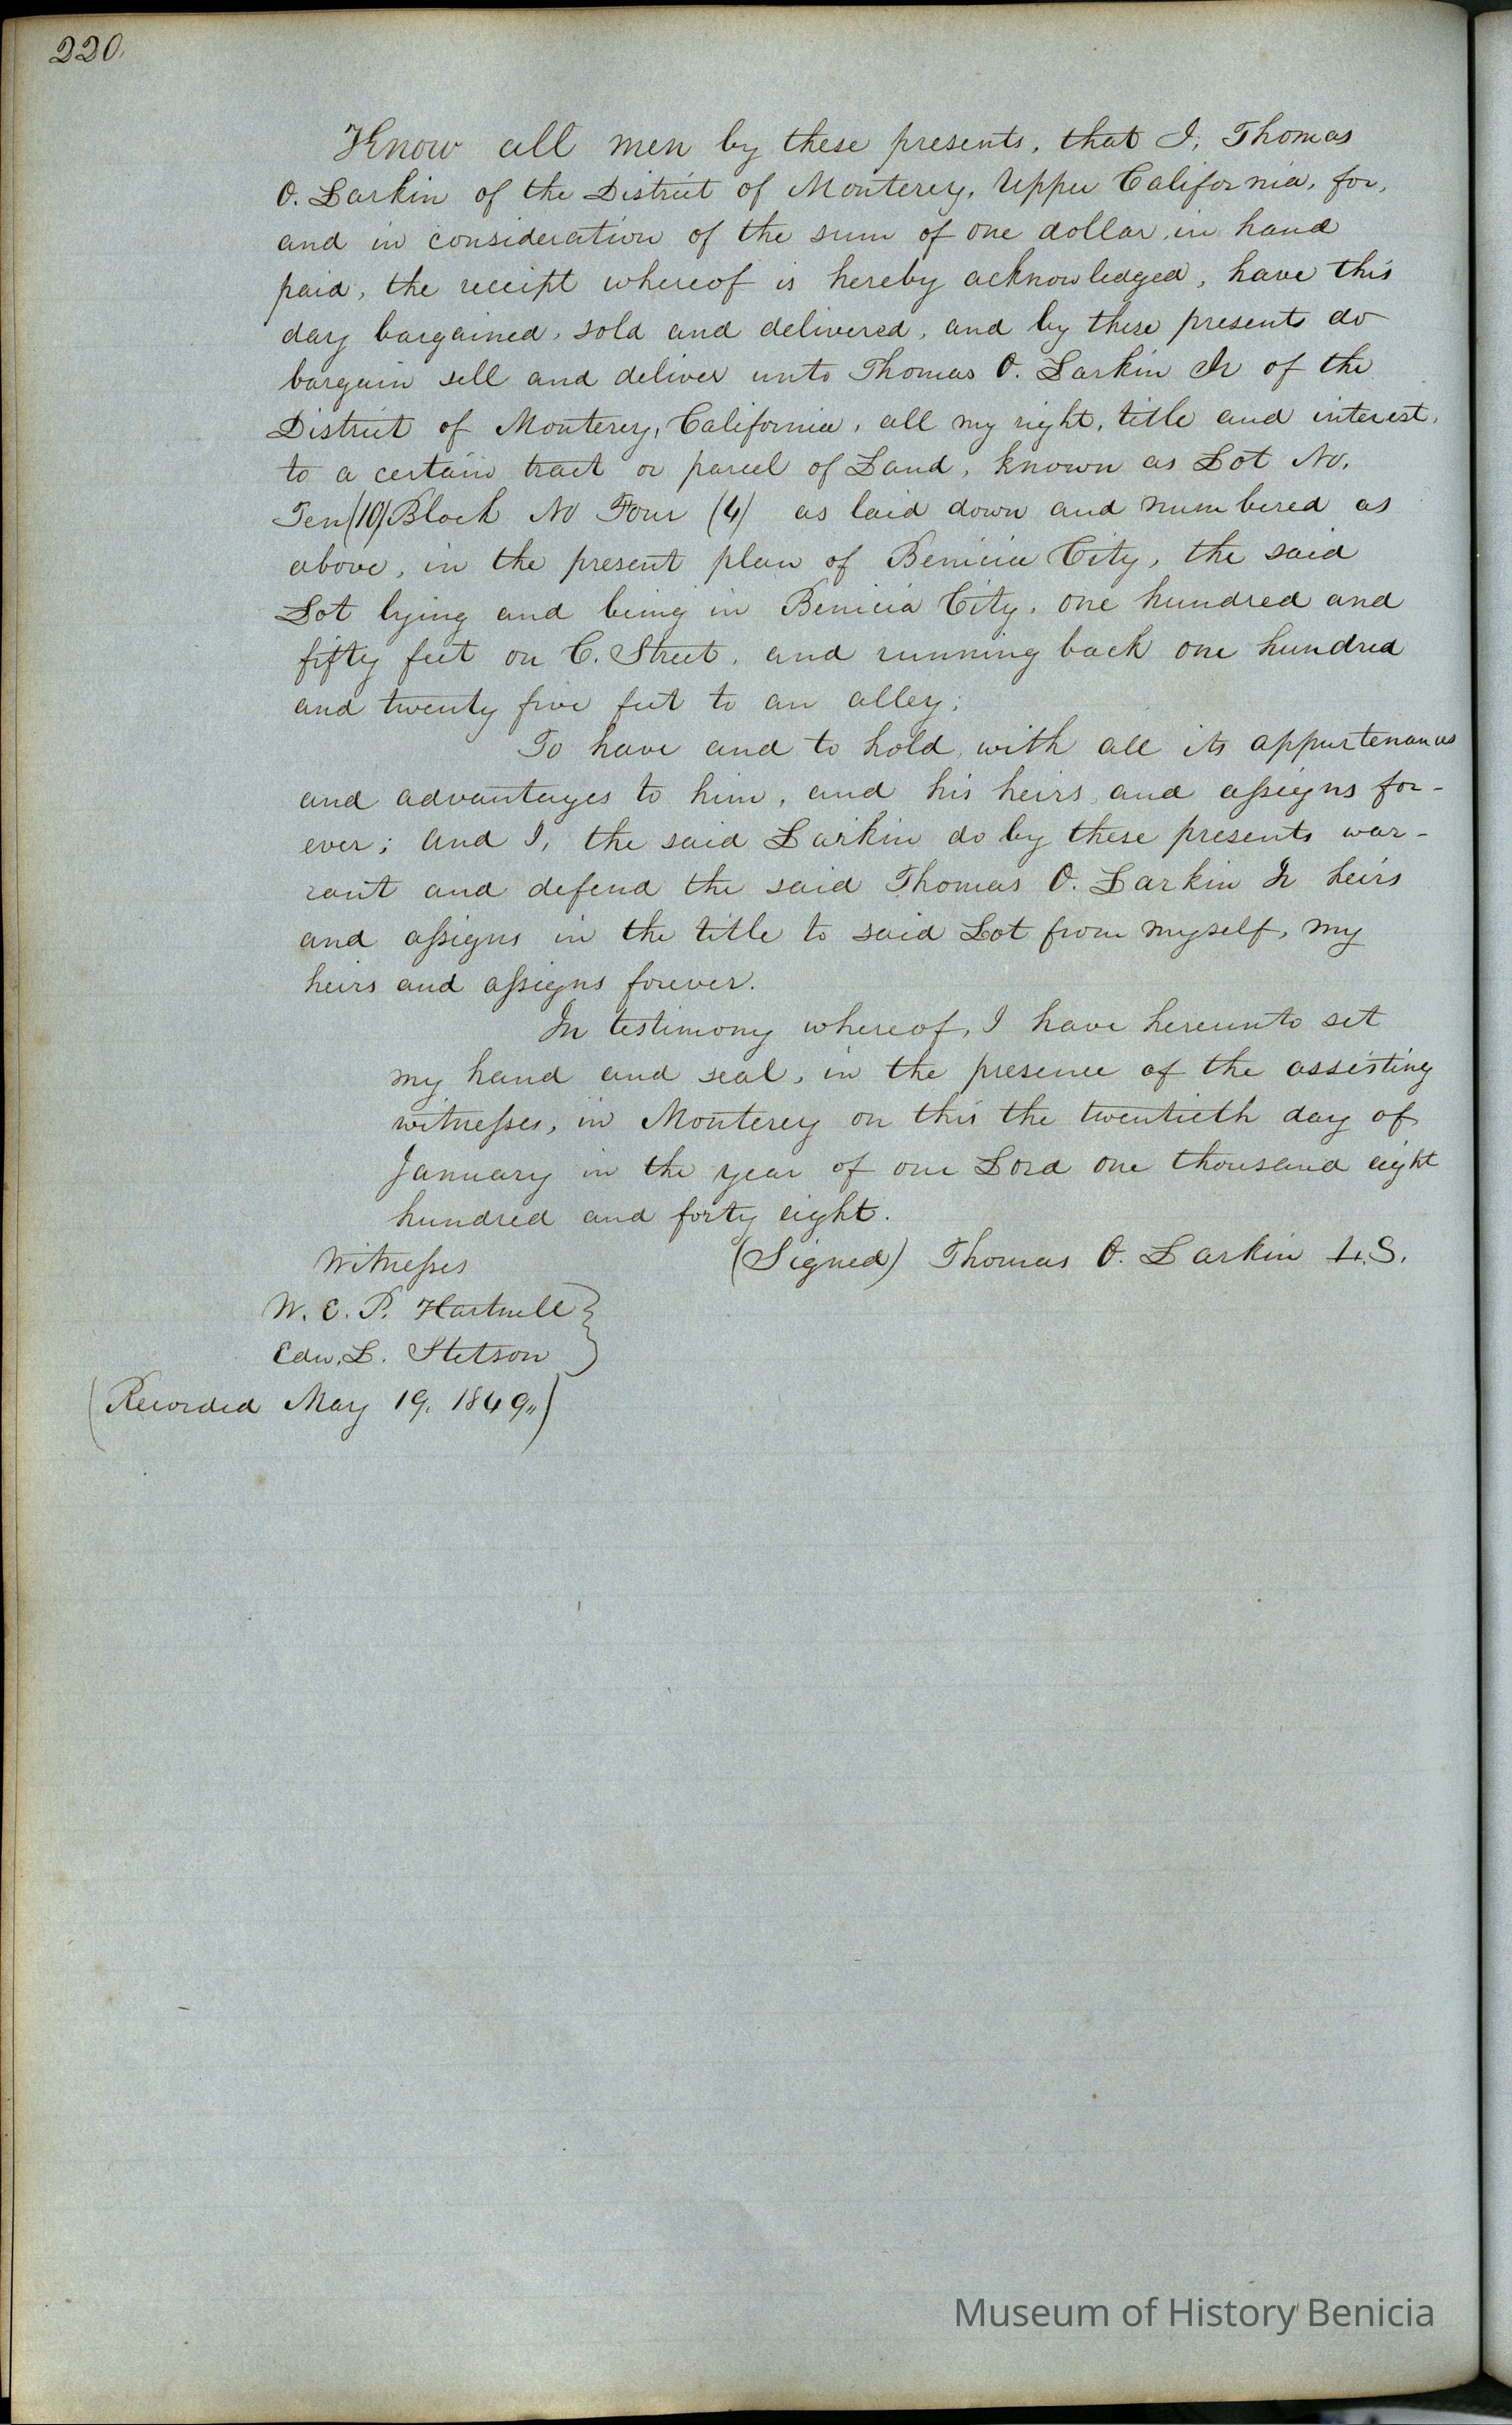 220.
Know all men by these presents, that I, Thomas
O. Larkin of the District of Monterey, Upper California, for,
and in consideration of the sum of one dollar in hand
paid, the receipt whereof is hereby acknowledged, have this
day bargained, sold and delivered, and by these presents do
bargain sell and deliver unto Thomas O. Larkin Jr of the
District of Monterey, California, all my right, title and interest,
to a certain tract or parcel of Land, known as Lot No.
Ten (10) Block No Four (4) as laid down and numbered as
above, in the present plan of Benicia City, the said
Lot lying and being in Benicia City, one hundred and
fifty feet on C. Street, and running back one hundred
and twenty five feet to an alley;
To have and to hold, with all its appurtenances
and advantages to him, and his heirs and assigns for-
ever; and I, the said Larkin do by these presents war-
rant and defend the said Thomas O. Larkin Jr heirs
and assigns in the title to said Lot from myself, my
heirs and assigns forever.
In testimony whereof, I have hereunto set
my hand and seal, in the presence of the assisting
witnesses, in Monterey on this the twentieth day of
January in the year of our Lord one thousand eight
hundred and forty eight.
Witnesses (Signed) Thomas O. Larkin L.S.
W. E. P. Hartnell
Edw. L. Stetson
(Recorded May 19, 1849,,)
Museum of History Benicia